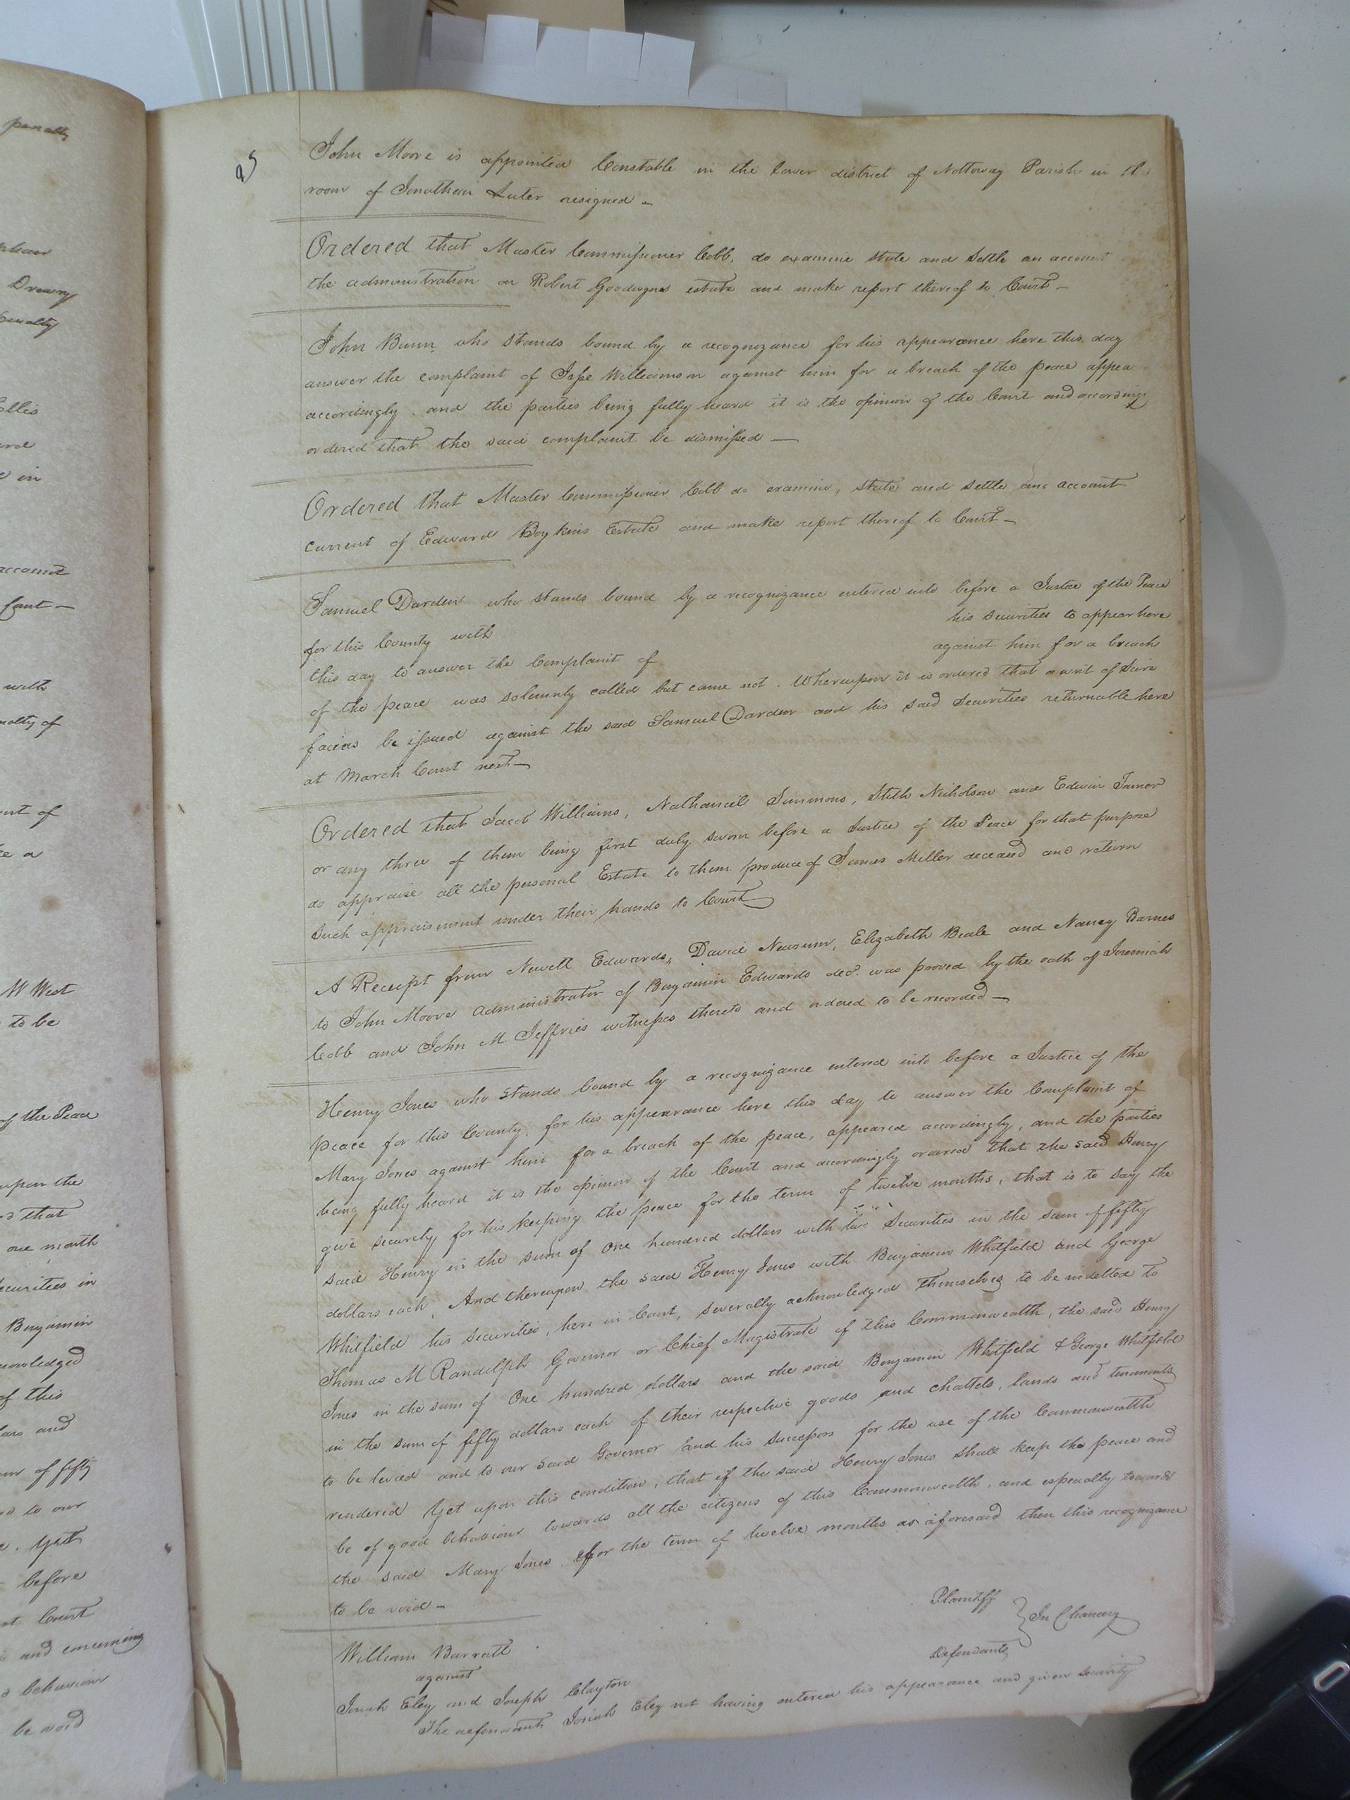 penalty
Drewry
penalty
in
account
Court -
with
penalty of
of
a
W West
to be
of the Peace
upon the
that
one month
securities in
Benjamin
acknowledged
of this
and
of fifty
to our
Yet
before
Court
and concerning
behaviour
be void
25
John Moore is appointed Constable in the lower district of Nottoway Parish in the
room of Jonathan Luter resigned -
Ordered that Master Commissioner Cobb, do examine state and settle an account
the administration on Robert Goodwyns estate and make report thereof to Court -
John Bunn who stands bound by a recognizance for his appearance here this day
answer the complaint of Jesse Williamson against him for a breach of the peace appea
accordingly and the parties being fully heard it is the opinion of the Court and accordingly
ordered that the said complaint be dismissed -
Ordered that Master Commissioner Cobb do examine, state and settle an account
current of Edward Boykins Estate and make report thereof to Court -
Samuel Darden who stands bound by a recognizance entered into before a Justice of the Peace
for this County with his securities to appear here
this day to answer the Complaint of against him for a breach
of the peace was solemnly called but came not. Whereupon it is ordered that a writ of Scire
facias be issued against the said Samuel Darden and his said Securities returnable here
at March Court next -
Ordered that Jacob Williams, Nathaniel Simmons, Stith Nicholson and Edwin Turner
or any three of them being first duly sworn before a Justice of the Peace for that purpose
do appraise all the personal Estate to them produce of James Miller deceased and return
such appraisement under their hands to Court
A Receipt from Newett Edwards, David Newsum, Elizabeth Beale and Nancy Barnes
to John Moore administrator of Benjamin Edwards decd. was proved by the oath of Jeremiah
Cobb and John M Jeffries witnesses thereto and ordered to be recorded -
Henry Jones who stands bound by a recognizance entered into before a Justice of the
Peace for this County, for his appearance here this day to answer the Complaint of
Mary Jones against him for a breach of the peace, appeared accordingly, and the parties
being fully heard it is the opinion of the Court and accordingly ordered that the said Henry
give security for his keeping the peace for the term of twelve months, that is to say the
said Henry in the sum of One hundred dollars with two Securities in the sum of fifty
dollars each. And thereupon the said Henry Jones with Benjamin Whitfield and George
Whitfield his securities, here in Court, severally acknowledged themselves to be indebted to
Thomas M Randolph Governor or Chief Magistrate of this Commonwealth, the said Henry
Jones in the sum of One hundred dollars and the said Benjamin Whitfield & George Whitfield
in the sum of fifty dollars each of their respective goods and chattels, lands and tenements
to be levied and to our said Governor and his Successors for the use of the Commonwealth
rendered Yet upon this condition, that if the said Henry Jones shall keep the peace and
be of good behaviour towards all the citizens of this Commonwealth, and especially towards
the said Mary Jones for the term of twelve months as aforesaid then this recognizance
to be void -
William Barratt Plaintiff
against } In Chancery
Josiah Eley and Joseph Clayton Defendants
The defendant Josiah Eley not having entered his appearance and given security